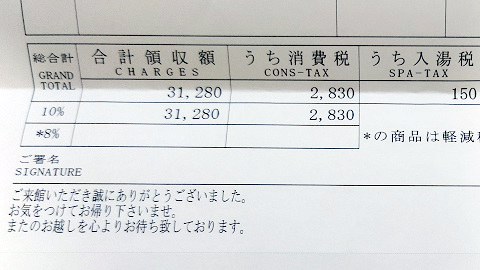 総合計 合計領収額 うち消費税 うち入湯税
GRAND TOTAL CHARGES CONS-TAX SPA-TAX
31,280 2,830 150
10% 31,280 2,830
*8% *の商品は軽減
ご署名
SIGNATURE
ご来館いただき誠にありがとうございました。
お気をつけてお帰り下さいませ。
またのお越しを心よりお待ち致しております。